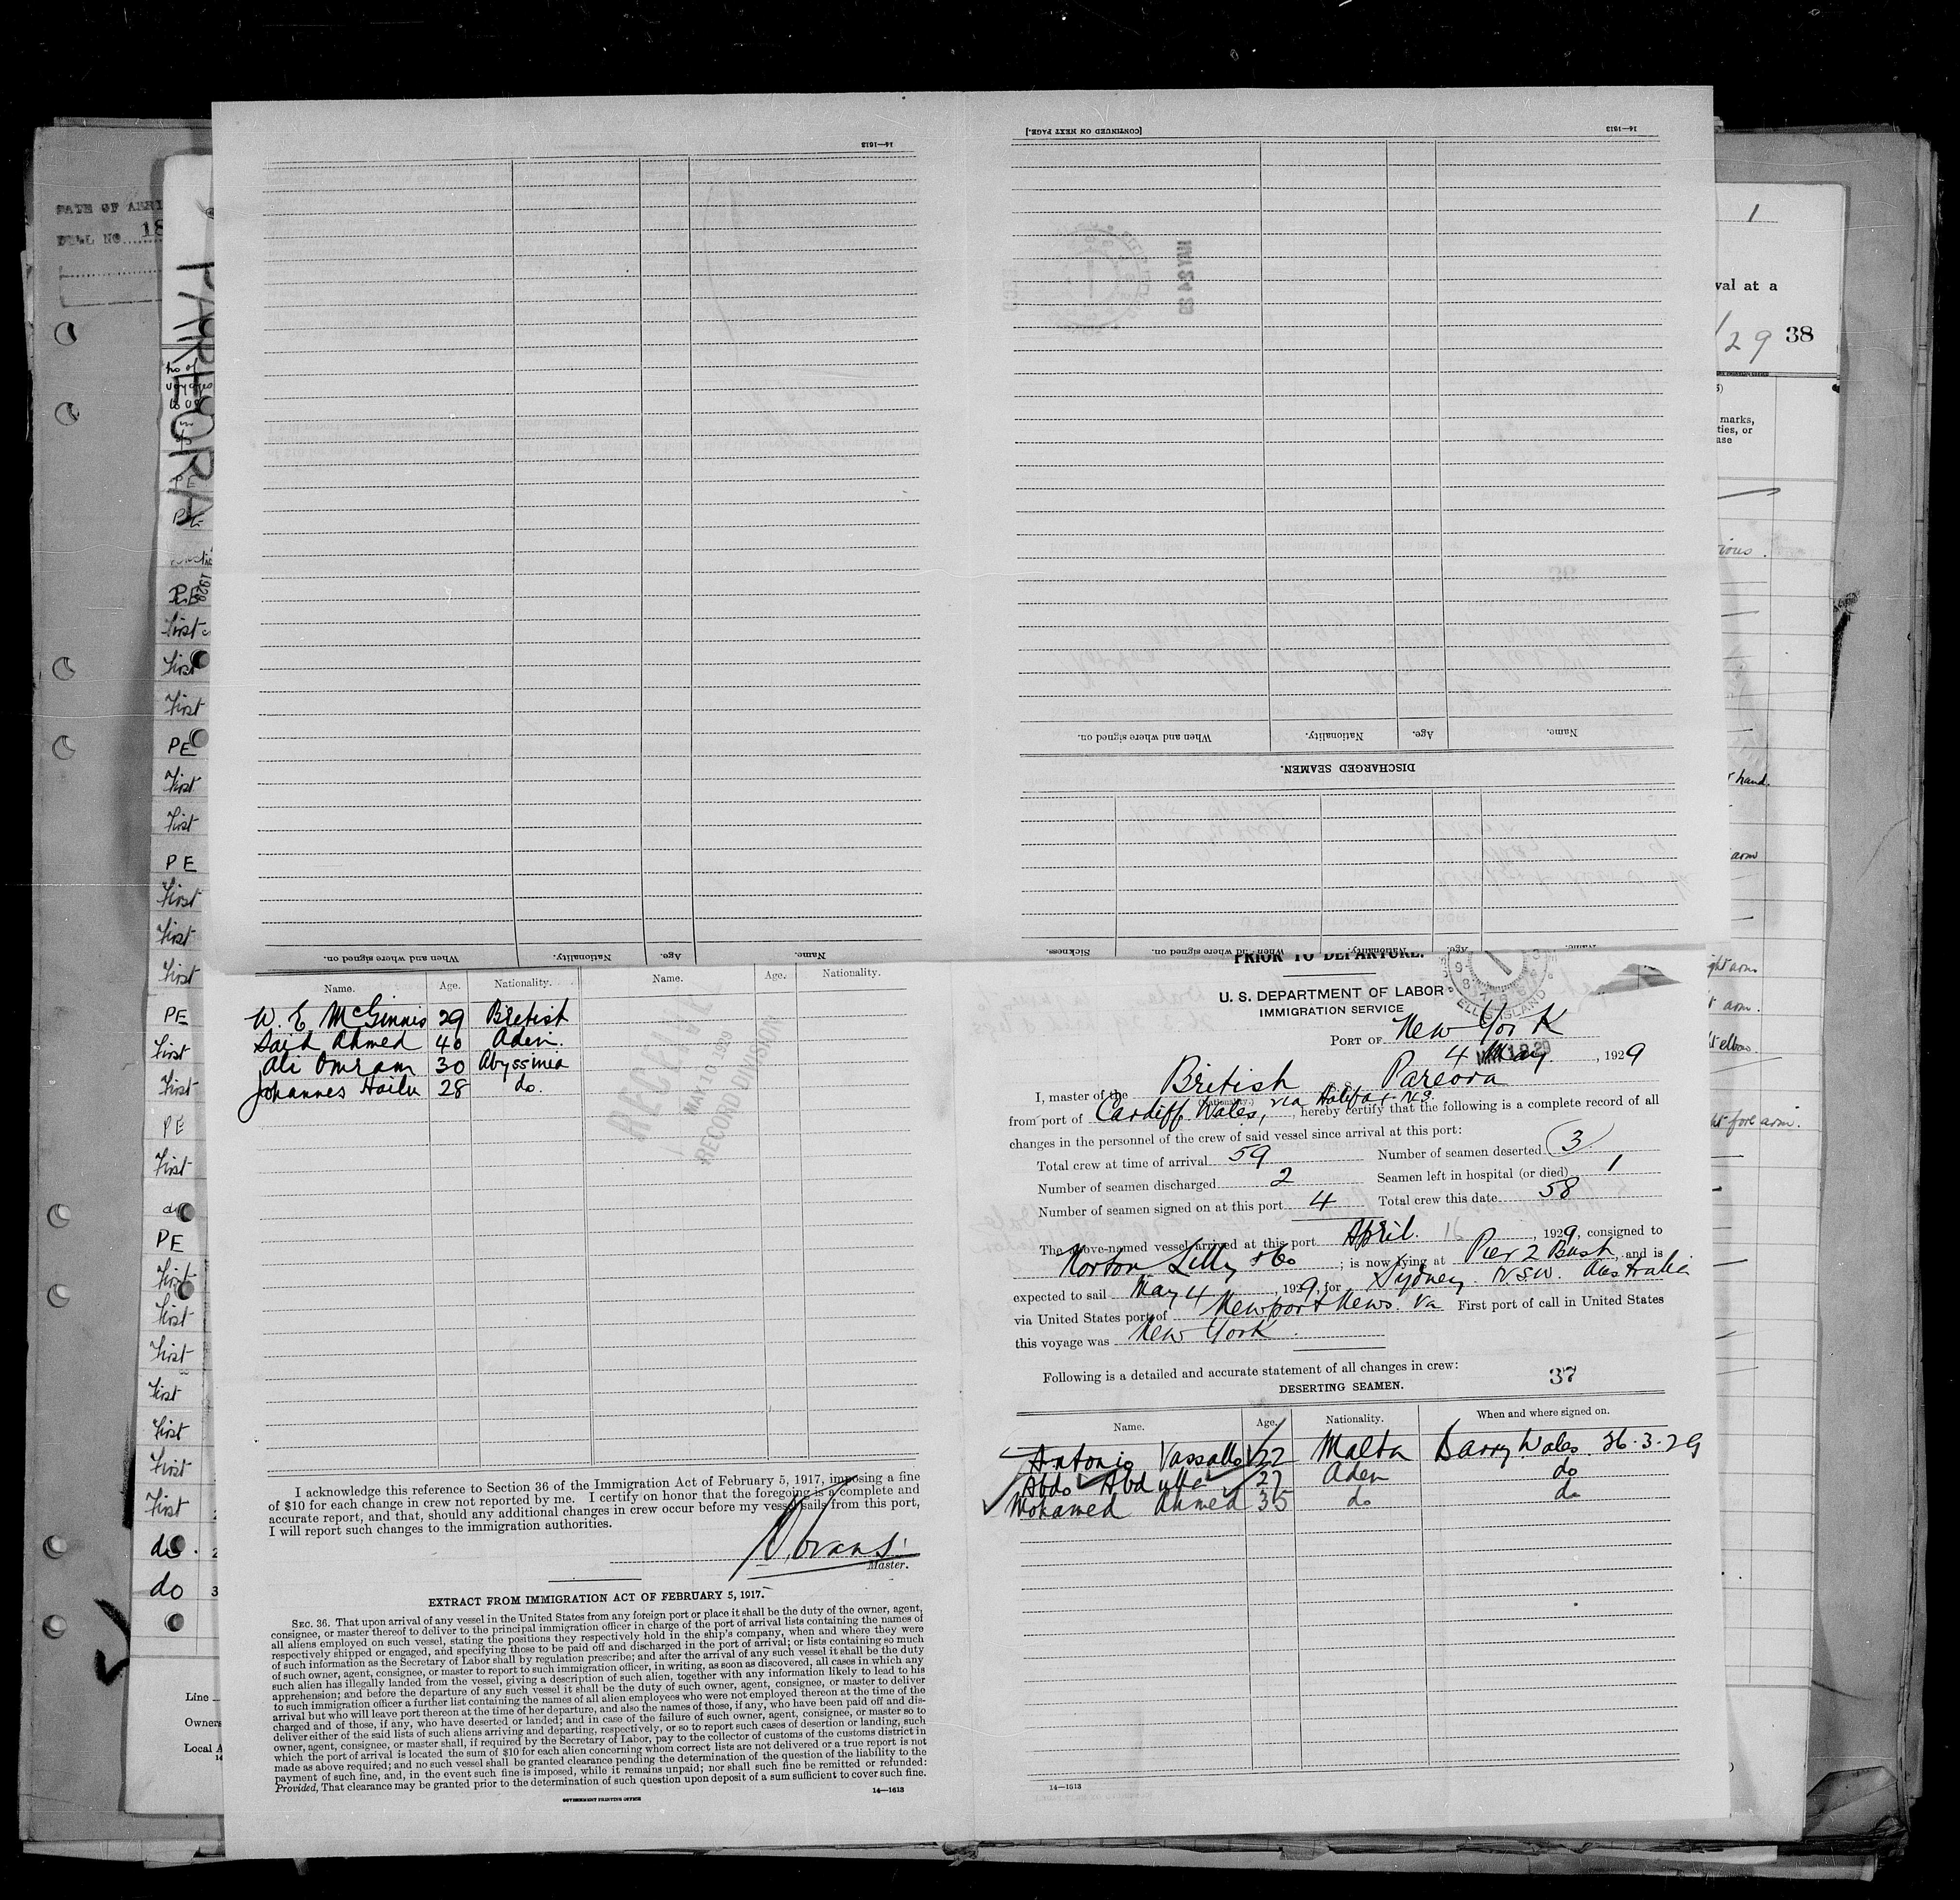 14—1613
[CONTINUED ON NEXT PAGE.]
14—1613
DATE OF ARRI
No. 18
PAREORA
1
val at a
/29 38
marks,
ties, or
ase
When and where signed on. Nationality. Age. Name.
DISCHARGED SEAMEN.
Sickness. When and where signed on. Nationality. Age. Name.
When and where signed on. Nationality. Age. Name.
Name. Age. Nationality. Name. Age. Nationality.
W. E. McGinnis 29 British
Said Ahmed 40 Aden.
Ali Omram 30 Abyssinia
Johannes Hailu 28 do.
RECEIVED
MAY 10 1929
RECORD DIVISION
I acknowledge this reference to Section 36 of the Immigration Act of February 5, 1917, imposing a fine
of $10 for each change in crew not reported by me. I certify on honor that the foregoing is a complete and
accurate report, and that, should any additional changes in crew occur before my vessel sails from this port,
I will report such changes to the immigration authorities.
Evans
Master.
EXTRACT FROM IMMIGRATION ACT OF FEBRUARY 5, 1917.
SEC. 36. That upon arrival of any vessel in the United States from any foreign port or place it shall be the duty of the owner, agent,
consignee, or master thereof to deliver to the principal immigration officer in charge of the port of arrival lists containing the names of
all aliens employed on such vessel, stating the positions they respectively hold in the ship's company, when and where they were
respectively shipped or engaged, and specifying those to be paid off and discharged in the port of arrival; or lists containing so much
of such information as the Secretary of Labor shall by regulation prescribe; and after the arrival of any such vessel it shall be the duty
of such owner, agent, consignee, or master to report to such immigration officer, in writing, as soon as discovered, all cases in which any
such alien has illegally landed from the vessel, giving a description of such alien, together with any information likely to lead to his
apprehension; and before the departure of any such vessel it shall be the duty of such owner, agent, consignee, or master to deliver
to such immigration officer a further list containing the names of all alien employees who were not employed thereon at the time of the
arrival but who will leave port thereon at the time of her departure, and also the names of those, if any, who have been paid off and dis-
charged and of those, if any, who have deserted or landed; and in case of the failure of such owner, agent, consignee, or master so to
deliver either of the said lists of such aliens arriving and departing, respectively, or so to report such cases of desertion or landing, such
owner, agent, consignee, or master shall, if required by the Secretary of Labor, pay to the collector of customs of the customs district in
which the port of arrival is located the sum of $10 for each alien concerning whom correct lists are not delivered or a true report is not
made as above required; and no such vessel shall be granted clearance pending the determination of the question of the liability to the
payment of such fine, and, in the event such fine is imposed, while it remains unpaid; nor shall such fine be remitted or refunded:
Provided, That clearance may be granted prior to the determination of such question upon deposit of a sum sufficient to cover such fine.
GOVERNMENT PRINTING OFFICE 14—1613
PRIOR TO DEPARTURE.
U. S. DEPARTMENT OF LABOR
IMMIGRATION SERVICE
ELLIS ISLAND
PORT OF New York
4 May, 1929
I, master of the British S.S. Pareora
(Nationality.)
from port of Cardiff Wales, via Halifax N.S. hereby certify that the following is a complete record of all
changes in the personnel of the crew of said vessel since arrival at this port:
Total crew at time of arrival 59 Number of seamen deserted 3
Number of seamen discharged 2 Seamen left in hospital (or died) 1
Number of seamen signed on at this port 4 Total crew this date 58
The above-named vessel arrived at this port April 16, 1929, consigned to
Norton Lilly & Co; is now lying at Pier 2 Bush, and is
expected to sail May 4, 1929, for Sydney. NSW. Australia
via United States port of Newport News. Va First port of call in United States
this voyage was New York.
Following is a detailed and accurate statement of all changes in crew:
37
DESERTING SEAMEN.
Name. Age. Nationality. When and where signed on.
Antonio Vassallo 22 Malta Barry Wales 26·3·29
Abdo Abdulla 27 Aden do
Mohamed Ahmed 35 do do
14—1613
Line
Owners
Local A